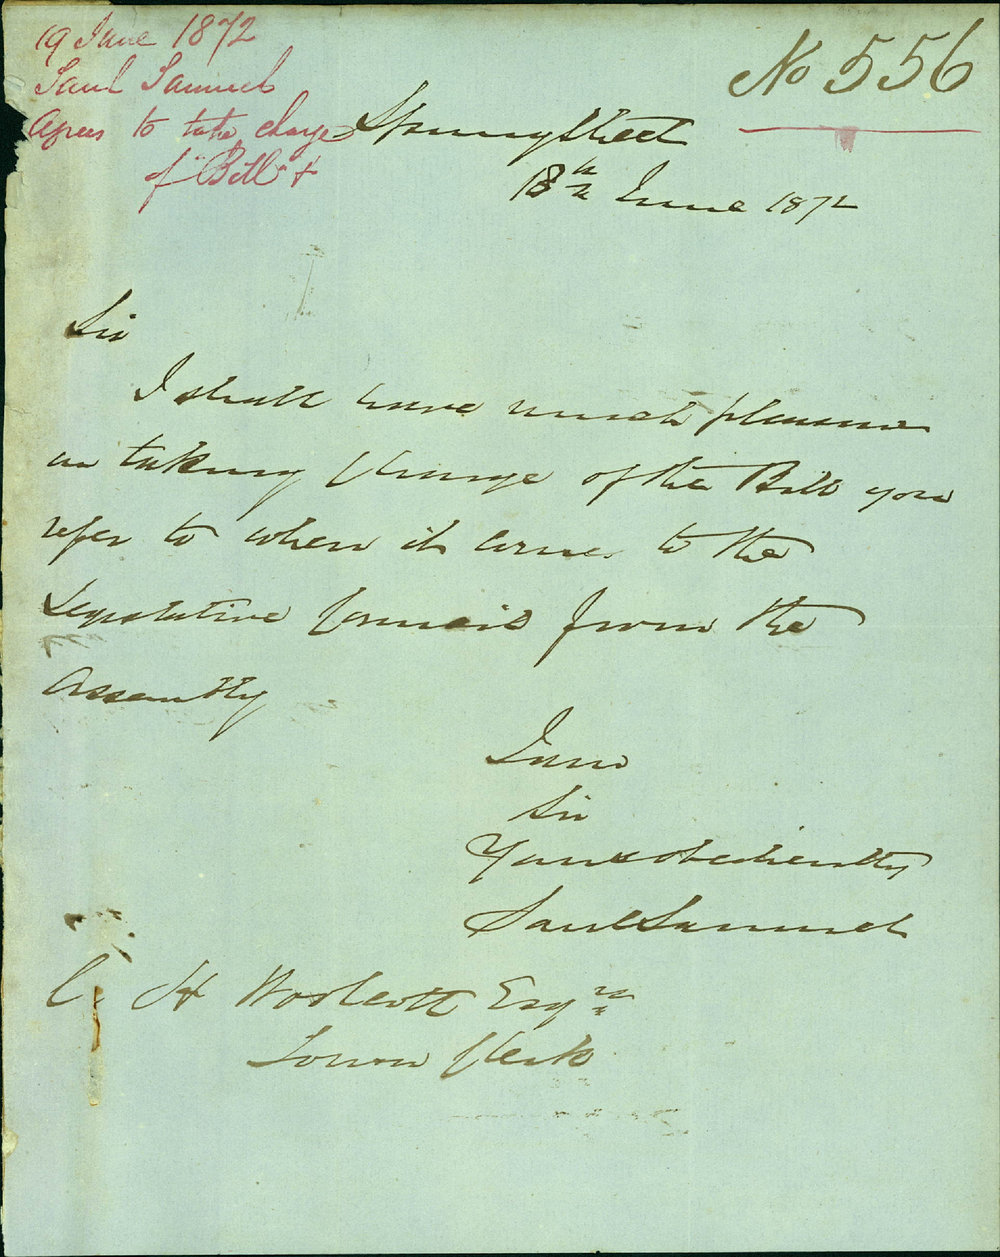 19 June 1872
Saul Samuel
Agrees to take charge
of "Bill" &
No 556
Spring Street
18th June 1872
Sir
I shall have much pleasure
in taking charge of the Bill you
refer to when it comes to the
Legislative Council from the
Assembly
I am
Sir
Yours obediently
Saul Samuel
C. H Woolcott Esqre
Town Clerk